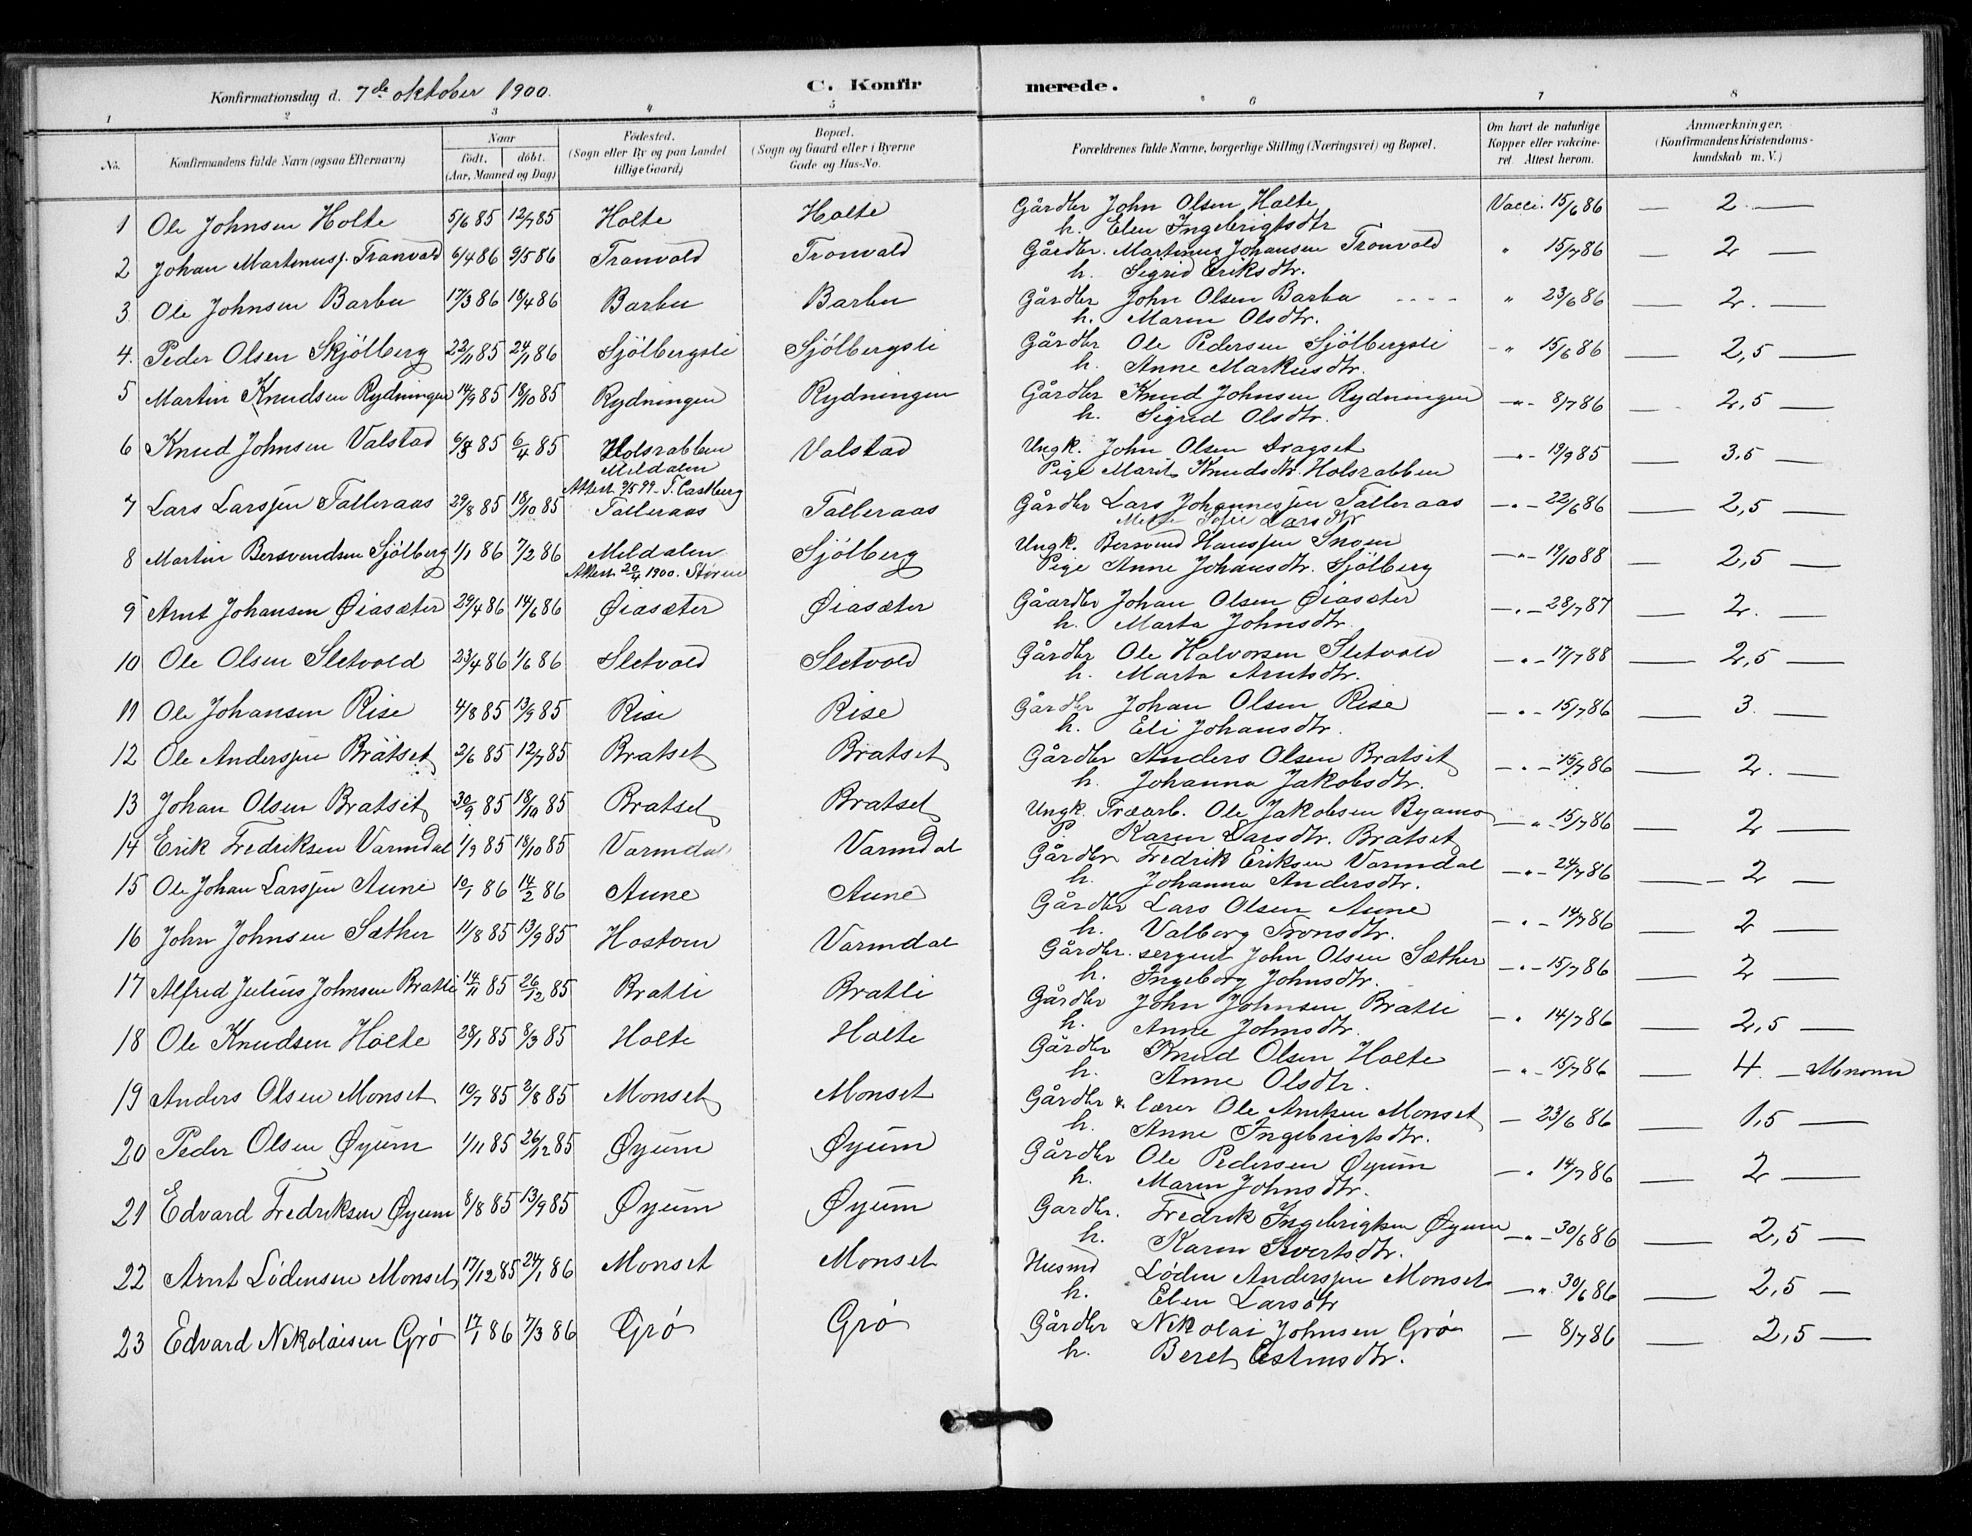 Konfirmationsdag d. 7de oktober 1900. C. Konfirmerede.
1 2 3 4 5 6 7 8
No. Konfirmandens fulde Navn (ogsaa Efternavn) Naar født. døbt. (Aar, Maaned og Dag) Fødested. (Sogn eller By og paa Landet tillige Gaard) Bopæl. (Sogn og Gaard eller i Byerne Gade og Hus-No. Forældrenes fulde Navne, borgerlige Stilling (Næringsvei) og Bopæl. Om havt de naturlige Kopper eller vakcineret. Attest herom. Anmærkninger. (Konfirmandens Kristendomskundskab m. V.)
1 Ole Johnsen Holte 5/6 85 12/7 85 Holte Holte Gårdbr John Olsen Holte Vacci. 15/6 86 — 2. —
h. Elen Ingebrigtsdtr
2 Johan Martinuss. Tronvold 6/4 86 9/5 86 Tronvold Tronvold Gårdbr. Martinus Johansen Tronvold " 15/7 86 — 2 —
h. Sigrid Eriksdtr.
3 Ole Johnsen Barbu 17/3 86 18/4 86 Barbu Barbu Gårdbr John Olsen Barbu " 23/6 86 — 2. —
h. Maren Olsdtr.
4. Peder Olsen Skjølberg 22/11 85 24/1 86 Sjølbergsli Sjølbergsli Gårdbr Ole Pedersen Sjølbergsli - " 15/6 86 — 2,5 —
h. Anne Markusdtr.
5 Martin Knudsen Rydningen 14/9 85 18/10 85 Rydningen Rydningen Gårdbr Knud Johnsen Rydningen —"— 8/7 86 — 2,5 —
h. Sigrid Olsdtr.
6 Knud Johnsen Valstad 6/3 85 6/4 85 Holsrabben Valstad Ungk. John Olsen Dragset —"— 19/9 85 — 3,5 —
Meldalen Pige Marit Knudsdtr. Holsrabben
Attest 9/5 99 - T. Castberg
7 Lars Larssen Talleraas 29/8 85 18/10 85 Talleraas Talleraas Gårdbr Lars Johannessen Talleraas —"— 22/6 86 — 2,5 —
Sofie Larsdtr
8 Martin Bersvendsen Sjølberg 1/1 86 7/2 86 Meldalen Sjølberg Ungk. Bersvend Hanssen Snoen —"— 19/10 88 — 2,5 —
Attest 20/4 1900. Støren Pige Anne Johansdtr. Sjølberg
9 Arnt Johansen Øiasæter 29/4 86 14/6 86 Øiasæter Øiasæter Gåardbr Johan Olsen Øiasæter —"— 28/7 87 — 2. —
h. Marta Johnsdtr.
10 Ole Olsen Sletvold 23/4 86 1/6 86 Sletvold Sletvold Gårdbr Ole Halvorsen Sletvold —"— 17/7 88 — 2,5 —
h. Marta Arntsdtr.
11 Ole Johansen Rise 4/8 85 13/9 85 Rise Rise Gårdbr Johan Olsen Rise —"— 15/7 86 — 3. —
h. Eli Johansdtr.
12 Ole Anderssen Bratset 2/6 85 12/7 85 Bratset Bratset Gårdbr Anders Olsen Bratset —"— 15/7 86 — 2. —
h. Johanna Jakobsdtr.
13 Johan Olsen Bratset 30/9 85 18/10 85 Bratset Bratset Ungk. Træarb. Ole Jakobsen Byamo —"— 15/7 86 — 2 —
P. Karen Larsdtr. Bratset
14 Erik Fredriksen Varmdal 1/9 85 18/10 85 Varmdal Varmdal Gårdbr Fredrik Eriksen Varmdal —"— 24/7 86 — 2 —
h. Johanna Andersdtr.
15 Ole Johan Larssen Aune 10/1 86 14/2 86 Aune Aune Gårdbr Lars Olsen Aune —"— 14/7 86 — 2 —
h. Valborg Tronsdtr.
16 John Johnsen Sæther 11/8 85 13/9 85 Hostom Varmdal Gårdbr. sergent John Olsen Sæther —"— 15/7 86 — 2 —
h. Ingeborg Johnsdtr.
17 Alfred Julius Johnsen Bratli 14/11 85 26/12 85 Bratli Bratli Gårdbr John Johnsen Bratli — " 14/7 86 — 2,5 —
h. Anne Johnsdtr.
18 Ole Knudsen Holte 28/1 85 8/3 85 Holte Holte Gårdbr Knud Olsen Holte —"— 15/7 86 — 4. —
h. Anne Olsdtr.
19 Anders Olsen Monset 19/7 85 2/8 85 Monset Monset Gårdbr & lærer Ole Arntsen Monset — 23/6 86 — 1,5 —
h. Anne Ingebrigtsdtr.
20 Peder Olsen Øyum 1/11 85 26/12 85 Øyum Øyum Gårdbr Ole Pedersen Øyum — " 14/7 86 — 2 —
h. Maren Johnsdtr.
21 Edvard Fredriksen Øyum 8/8 85 13/9 85 Øyum Øyum Gardbr. Fredrik Ingebrigtsen Øyum —"— 30/6 86 — 2,5 —
h. Karen Sivertsdtr.
22 Arnt Lødensen Monset 17/12 85 24/1 86 Monset Monset Husmd Løden Anderssen Monset —"— 30/6 86 — 2,5 —
h. Elen Larsdtr
23 Edvard Nikolaisen Grø 17/1 86 7/3 86 Grø Grø Gårdbr Nikolai Johnsen Grø — 8/7 86 — 2,5 —
h. Beret Estensdtr.